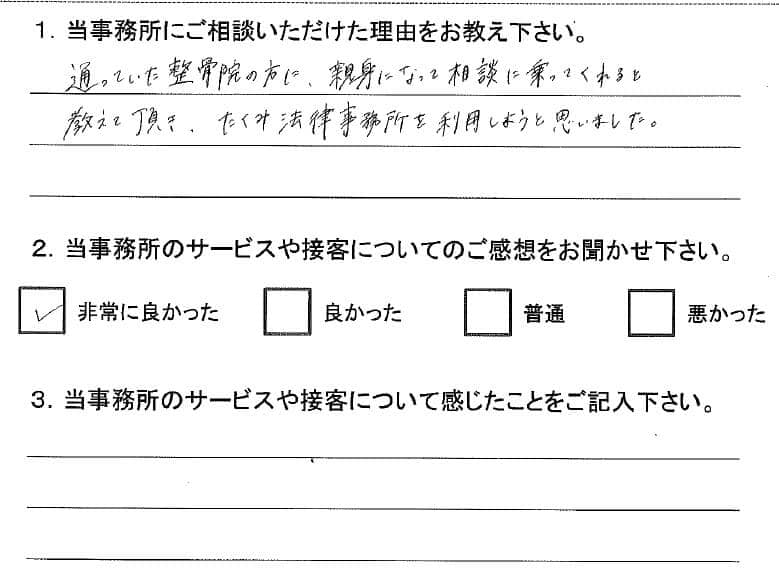 1. 当事務所にご相談いただけた理由をお教え下さい。
通っていた整骨院の方に、親身になって相談に乗ってくれると
教えて頂き、たくみ法律事務所を利用しようと思いました。
2. 当事務所のサービスや接客についてのご感想をお聞かせ下さい。
非常に良かった 良かった 普通 悪かった
3. 当事務所のサービスや接客について感じたことをご記入下さい。